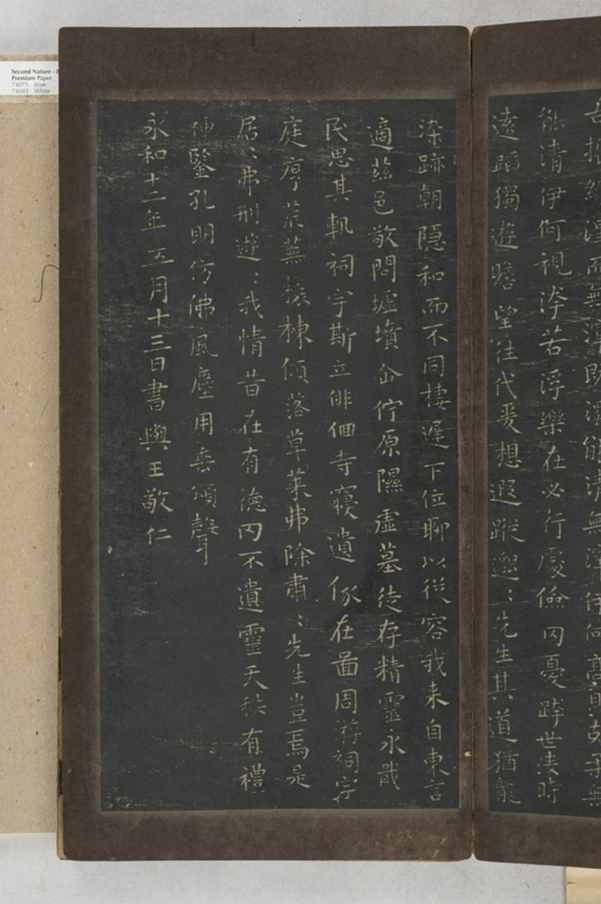 古振纓涅而無滓既濁能清無滓伊何高明克柔無
能清伊何視洿若浮樂在必行處儉罔憂跨世淩時
遠蹈獨遊瞻望往代爰想遐蹤邈〻先生其道猶龍
染跡朝隱和而不同棲遲下位聊以從容我来自東言
適茲邑敬問墟墳企佇原隰虛墓徒存精靈永戢
民思其軌祠宇斯立俳佪寺寢遺像在啚周游祠宇
庭序荒蕪榱棟傾落草萊弗除肅〻先生豈焉是
居〻弗刑遊〻我情昔在有德罔不遺靈天秩有禮
神鑒孔明仿佛風塵用垂頌聲
永和十二年五月十三日書與王敬仁
Second Nature -
Premium Paper